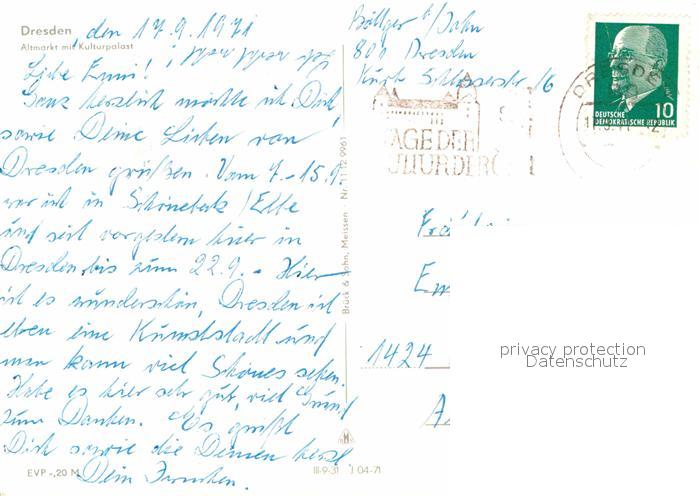 Dresden, den 17.9.1971
Altmarkt mit Kulturpalast
Liebe Emmi!
Ganz herzlich möchte ich Dich,
sowie Deine Lieben von
Dresden grüßen. Vom 7.-15.9.
war ich in Schönebeck/Elbe
und seit vorgestern hier in
Dresden, bis zum 22.9. - Hier
ist es wunderschön, Dresden ist
eben eine Kunststadt und
man kann viel Schönes sehen.
Habe es hier sehr gut, viel Grund
zum Danken. Es grüßt
Dich sowie die Deinen herzl.
Dein
EVP -,20 M
Brück & Sohn, Meissen Nr. 11 12 9961
III-9-31 J 04-71
Böttger b/Jahn
801 Dresden
Kurt Schlosserstr. 16
DRESDEN
AGE DER
DEUTSCHE
DEMOKRATISCHE REPUBLIK
10
Em
1424
A
privacy protection
Datenschutz